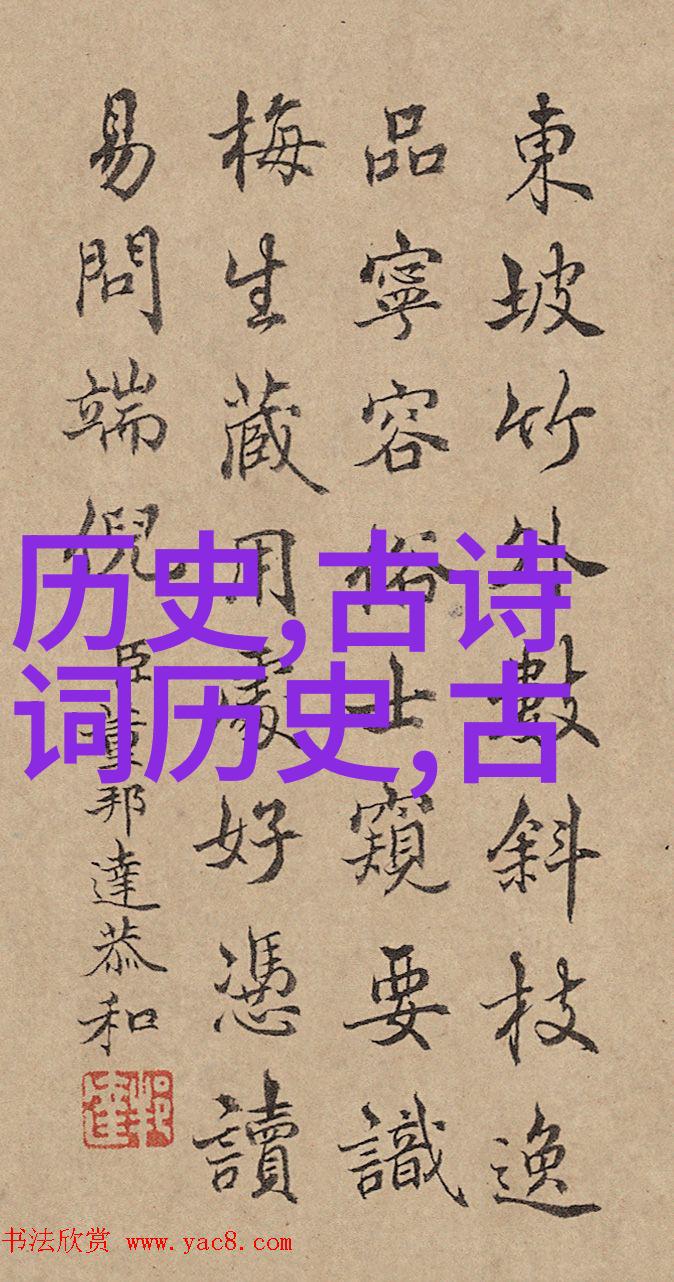 東坡竹外數斜枝逸
品寧容俗士窺要識
梅生藏用處好憑讀
易問端倪
臣董邦達恭和
历史,古诗
词历史,古
书法欣赏 www.yac8.com